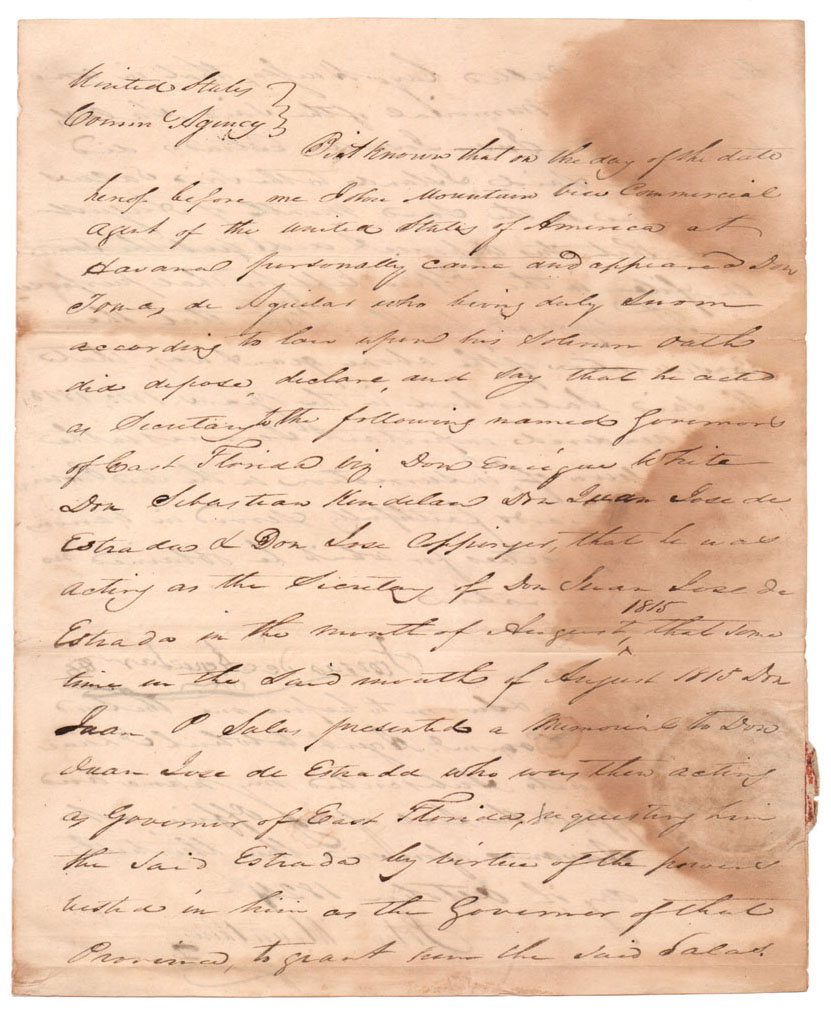 United States
Comm Agency
Be it Known that on the day of the date
hereof before me John Mountain Vice Commercial
Agent of the United States of America at
Havana personally came and appeared Don
Tomas de Aguilar who being duly Sworn
according to law upon his Solemn Oath
did depose, declare, and Say that he acted
as Secretary to the following named Governors
of East Florida viz Don Enrique White
Don Sebastian Kindelan Don Juan Jose de
Estrada & Don Jose Coppinger, that he was
acting as the Secretary of Don Juan Jose de
Estrada in the month of August 1815, that some
time in the Said month of August 1815 Don
Juan P Salas presented a Memorial to Don
Juan Jose de Estrada who was then acting
as Governor of East Florida, requesting him
the Said Estrada by virtue of the powers
vested in him as the Governor of that
Province, to grant him the Said Salas.